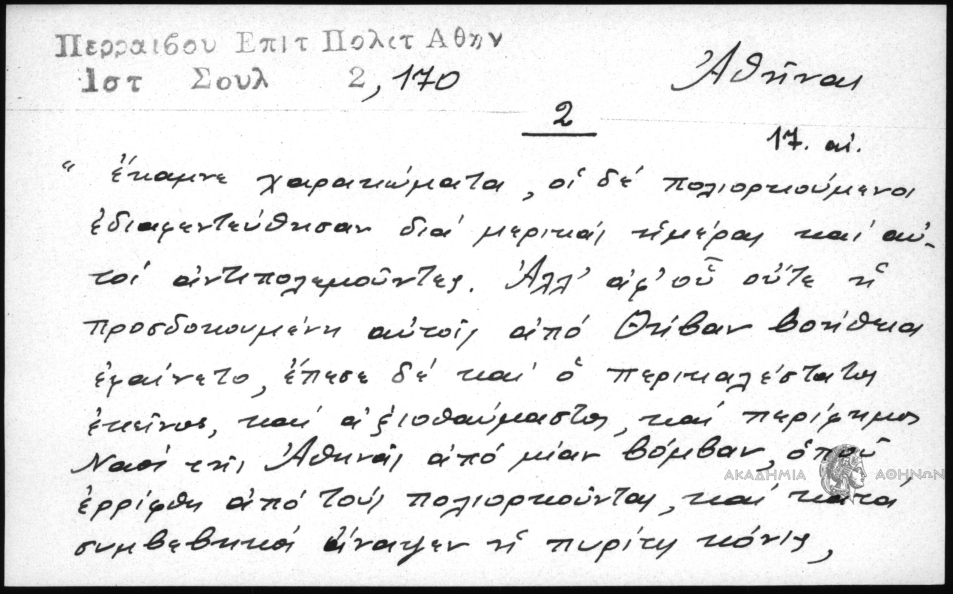 Περραιβου Επιτ Πολιτ Αθην
1στ Σουλ 2, 170
Ἀθῆναι
2
17. αἰ.
“ ἔκαμνε χαρακώματα, οἱ δέ πολιορκούμενοι
ἐδιαφεντεύθησαν διά μερικάς ἡμέρας καί αὐ-
τοί ἀντιπολεμοῦντες. Ἀλλ' ἀφ' οὗ οὔτε ἡ
προσδοκουμένη αὐτοῖς ἀπό Θήβαν βοήθεια
ἐφαίνετο, ἔπεσε δέ καί ὁ περικαλέστατος
ἐκεῖνος, καί ἀξιοθαύμαστος, καί περίφημος
Ναός τῆς Ἀθηνᾶς ἀπό μίαν βόμβαν, ὁποῦ
ἐρρίφθη ἀπό τούς πολιορκοῦντας, καί κατά
συμβεβηκός ἄναψεν ἡ πυρίτις κόνις,
ΑΚΑΔΗΜΙΑ ΑΘΗΝΩΝ